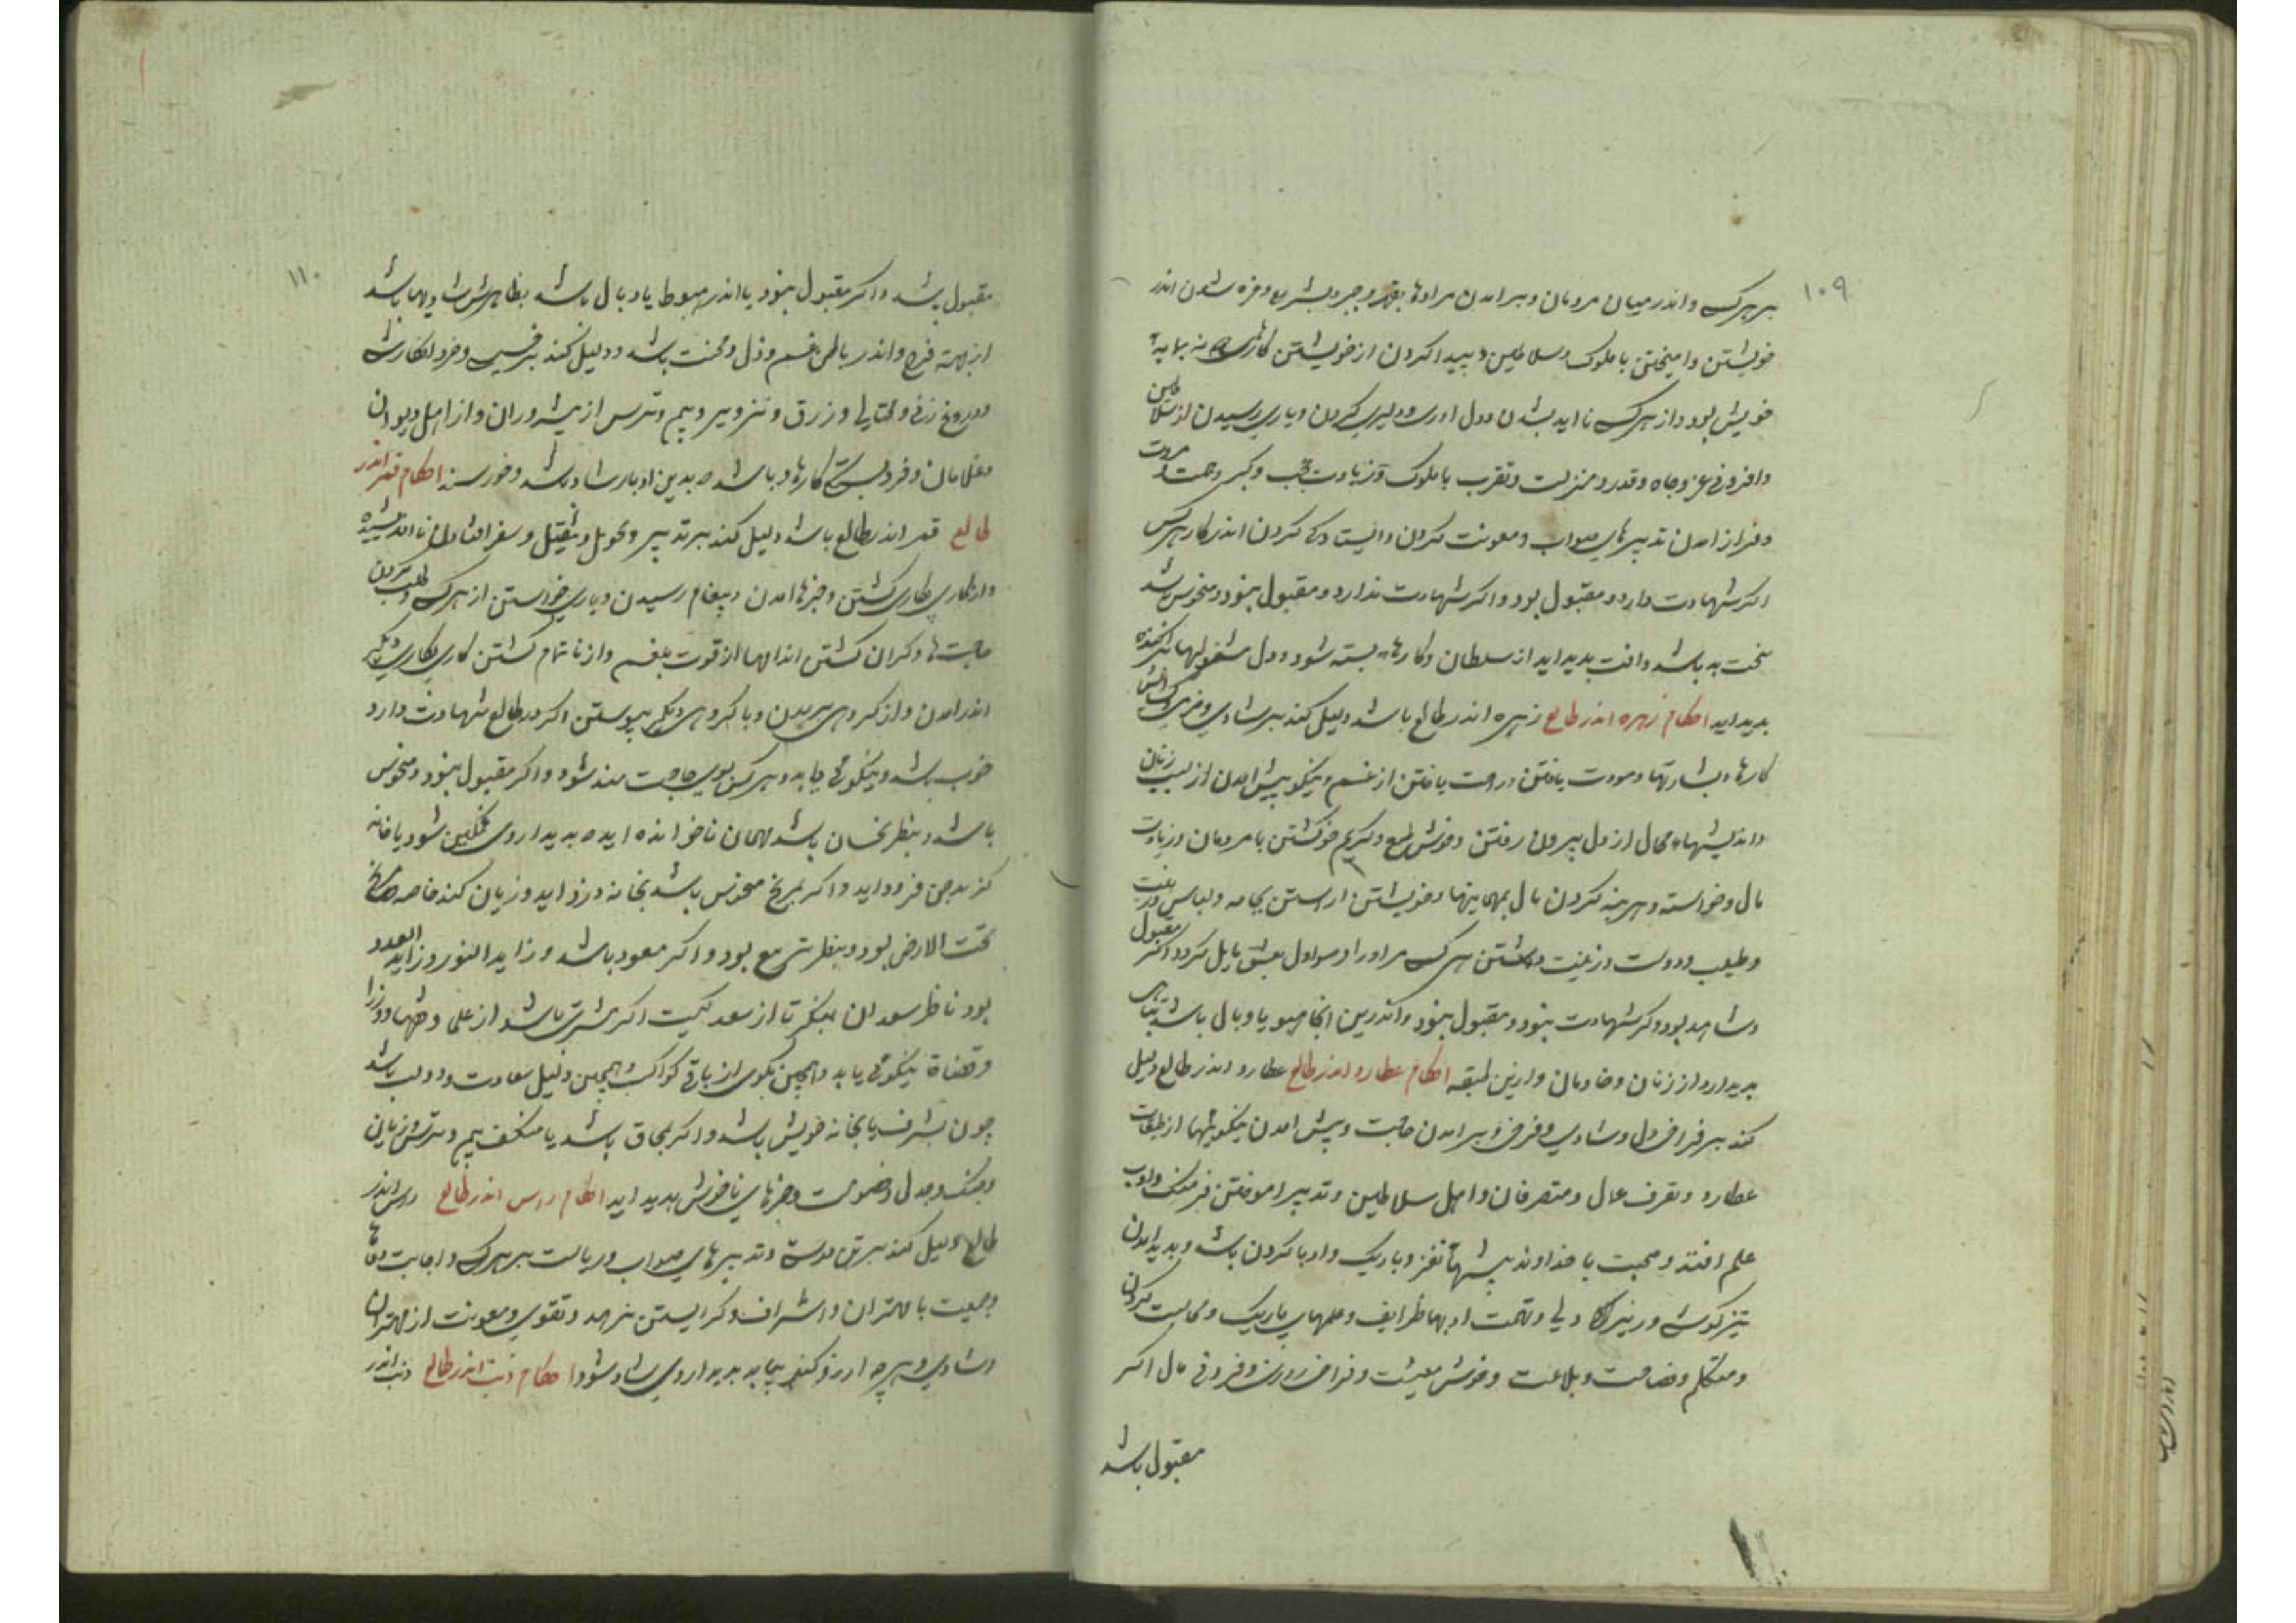 ۱۰۹
بر هر کس و اندر میان مردمان و برامدن مرادها بقهر و جبر و بشریع و مزه شدن اندر
خویشتن و امیختن با ملوک و سلاطین و پیدا کردن از خویشتن کارهای نه بپایه
خویش بود و از هر کس نا اید بشدن و دل اوری و دلیری کردن و یاری رسیدن از سلاطین
و افزونی عز و جاه و قدر و منزلت و تقرب با ملوک و زیادت و کبر و همت و مروت
و فراز امدن تدبیرهای صواب و معونت کردن و ایستادگی کردن اندر کار هر کس
اکر شهادت دارد و مقبول بود و اکر شهادت ندارد و مقبول نبود و منحوس باشد
سخت بد باشد و افت پدید اید از سلطان و کارهاء بسته شود و دل مشغولیها پراکنده
پدید اید احکام زهره اندر طالع زهره اندر طالع باشد دلیل کند بر شادی و خرمی و کشایش
کارها و بشارتها و مودت یافتن و راحت یافتن از غم و نیکو پیش امدن از سبب زنان
و اندیشهاء محال از دل بیرون رفتن و خوش طبع و کریم خو کشتن با مردمان و زیادت
مال و خواسته و هزینه کردن مال بمهمانیها و خویشتن اراستن بجامه و لباس و رغبت
و طیب و دوست و زینت داشتن هر کس مر او را و مر او دل بعشق مایل کردد اکر مقبول
و شاهد بود و اکر شهادت نبود و مقبول نبود و اندرین انجا هبوط یا وبال باشد تباهی
پدید ارد از زنان و خادمان و ازین طبقه احکام عطارد اندر طالع عطارد اندر طالع دلیل
کند بر فراخ دل و شادی و فرخی و برامدن حاجت و پیش امدن نیکوییها از طبقات
عطارد و تقرف عمال و متصرفان و اهل سلاطین و تدبیر اموختن فرهنک و ادب
علم افتد و صحبت با خداوند پیشهاء نغز و باریک و ادبا کردن باشد و پدید امدن
تیز کوشی و زیرکی و حکمت ادبها ظرایف و علمهای باریک و مجالست کردن
و متکلم و فصاحت و بلاغت و خوش معیشت و فراخ روزی و فزونی مال اکر
مقبول باشد
۱۱۰
مقبول باشد و اکر مقبول نبود یا اندر هبوط یا وبال باشد بظاهرش شادیها باشد
از جهة فرح و اندر باطن غم و ذل و محنت باشد و دلیل کند بر
و دروغ زنی و محتالی و زرق و تزویر و بیم و ترس از پیشه وران و از اهل دیوان
و غلامان و فرو بستگی کارها و باشد که بدین ادبار شاد باشد و خورسند احکام قمر اندر
طالع قمر اندر طالع باشد دلیل کند بر تدبیر و تحویل و نقل و سفر افتادن نا اندیشیده
و از کاری بکاری کشتن و خبرها امدن و پیغام رسیدن و یاری خواستن از هر کس و طلب کردن
حاجت ها و کران کشتن اندامها از قوت بلغم و از ناتمام کشتن کاری بکاری دیگر
اندر امدن و از کروهی بریدن و با کروهی دیگر پیوستن اکر در طالع شهادت دارد
خوب باشد و نیکوئی یابد و هر کس بوی حاجت مند شود و اکر مقبول نبود و منحوس
باشد و بنظر نحسان باشد مهمان ناخوانده اید که بدیدار وی غمگین شود یا خانه
کز بدجی فرود اید و اکر بمریخ منحوس باشد بخانه دزد اید و زیان کند خاصه که مریخ
تحت الارض بود و بنظر تربیع بود و اکر مسعود باشد و زاید النور و زاید العدد
بود ناظر سعدان بنکر تا از سعد کیست اکر مشتریست باشد از علما و فقها و وزرا
و قضاة نیکوئی یابد و همچنین بگوی از باقی کواکب و همچنین دلیل سعادت و دولت باشد
چون بشرف یا بخانه خویش باشد و اکر بمحاق باشد یا منکسف بیم و ترس و زیان
و جنک و جدل و خصومت و خبرهای ناخوش پدید اید احکام راس اندر طالع راس اندر
طالع دلیل کند بر تن درستی و تدبیرهای صواب و ریاست بر هر کس و اجابت دعاها
و جمعیت با مهتران و اشراف و کرایستن بزهد و تقوی و معونت از مهتران
و شادی و هر چه ارزو کند بیابد بدیدار وی شاد شود احکام ذنب اندر طالع ذنب اندر